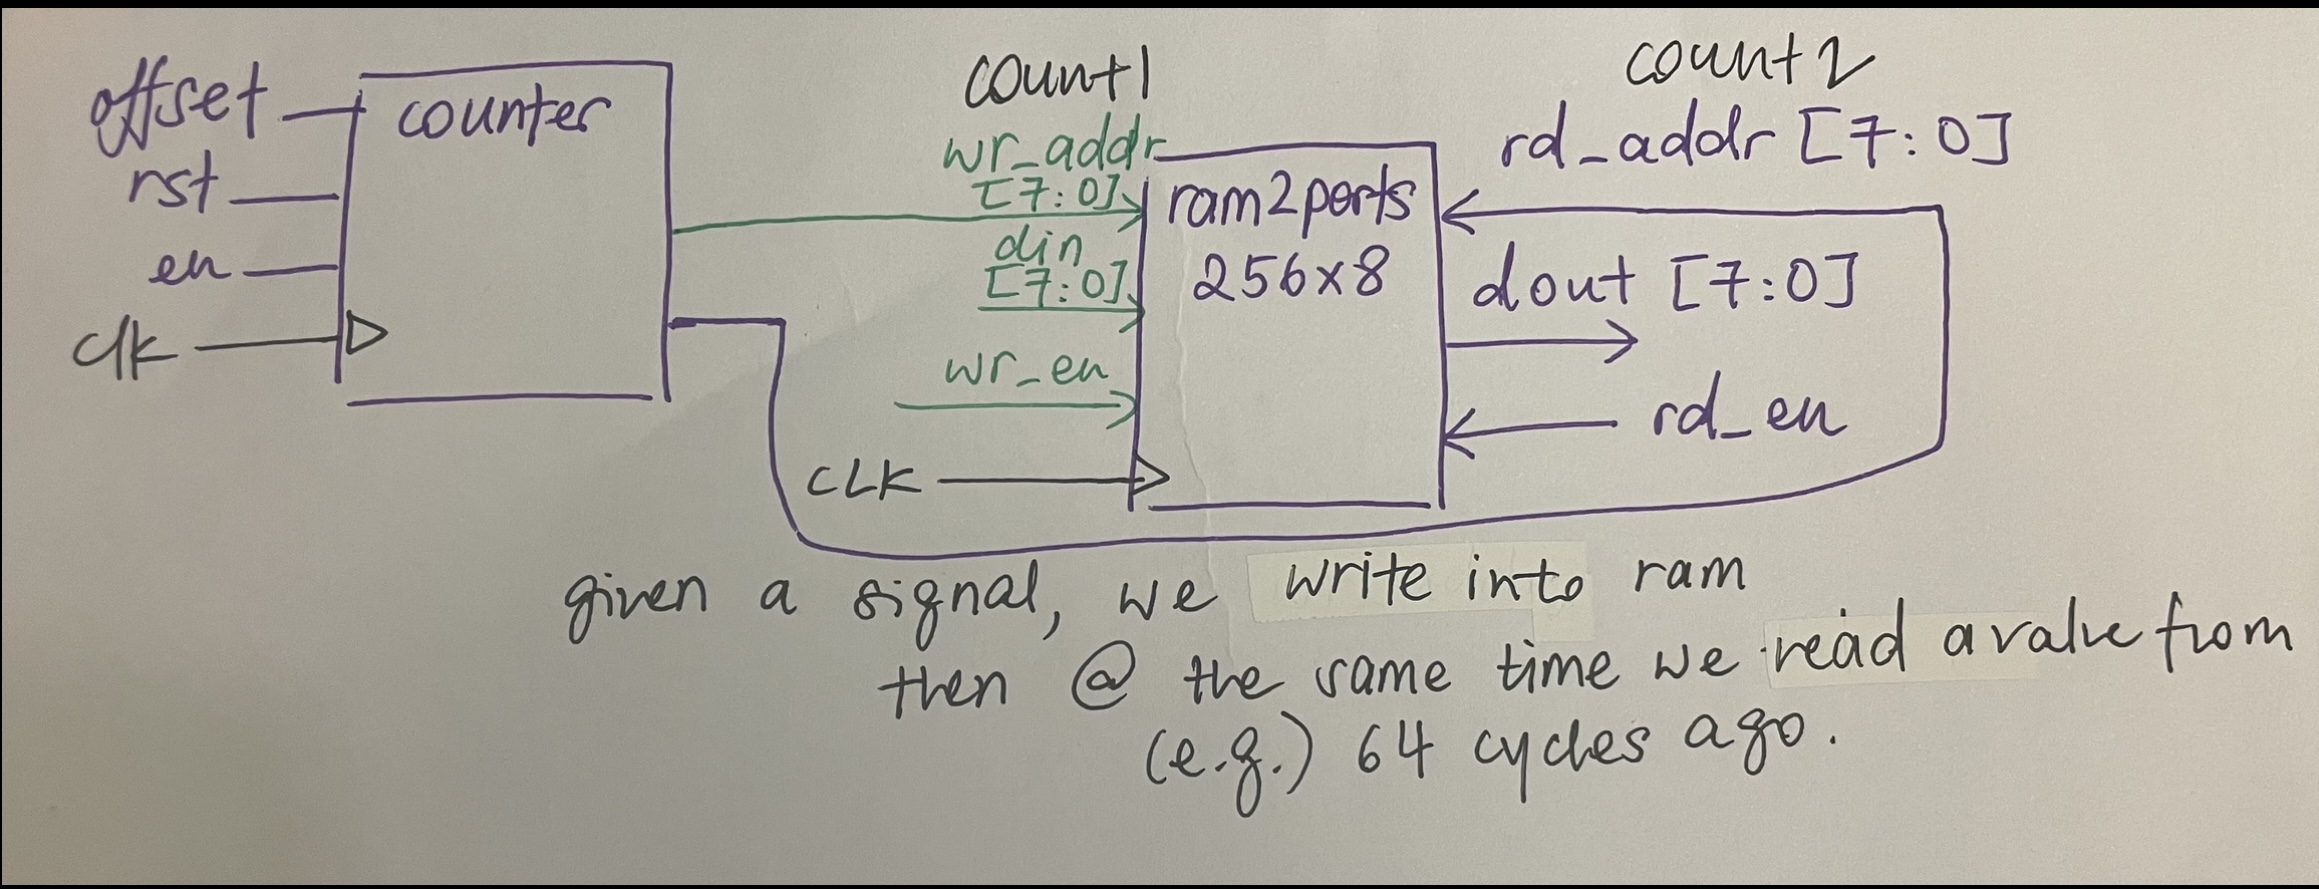 offset
rst
en
clk
counter
count1
wr_addr
[7:0]
din
[7:0]
wr_en
CLK
ram2ports
256x8
count2
rd_addr [7:0]
dout [7:0]
rd_en
given a signal, we write into ram
then @ the same time we read a value from
(e.g.) 64 cycles ago.